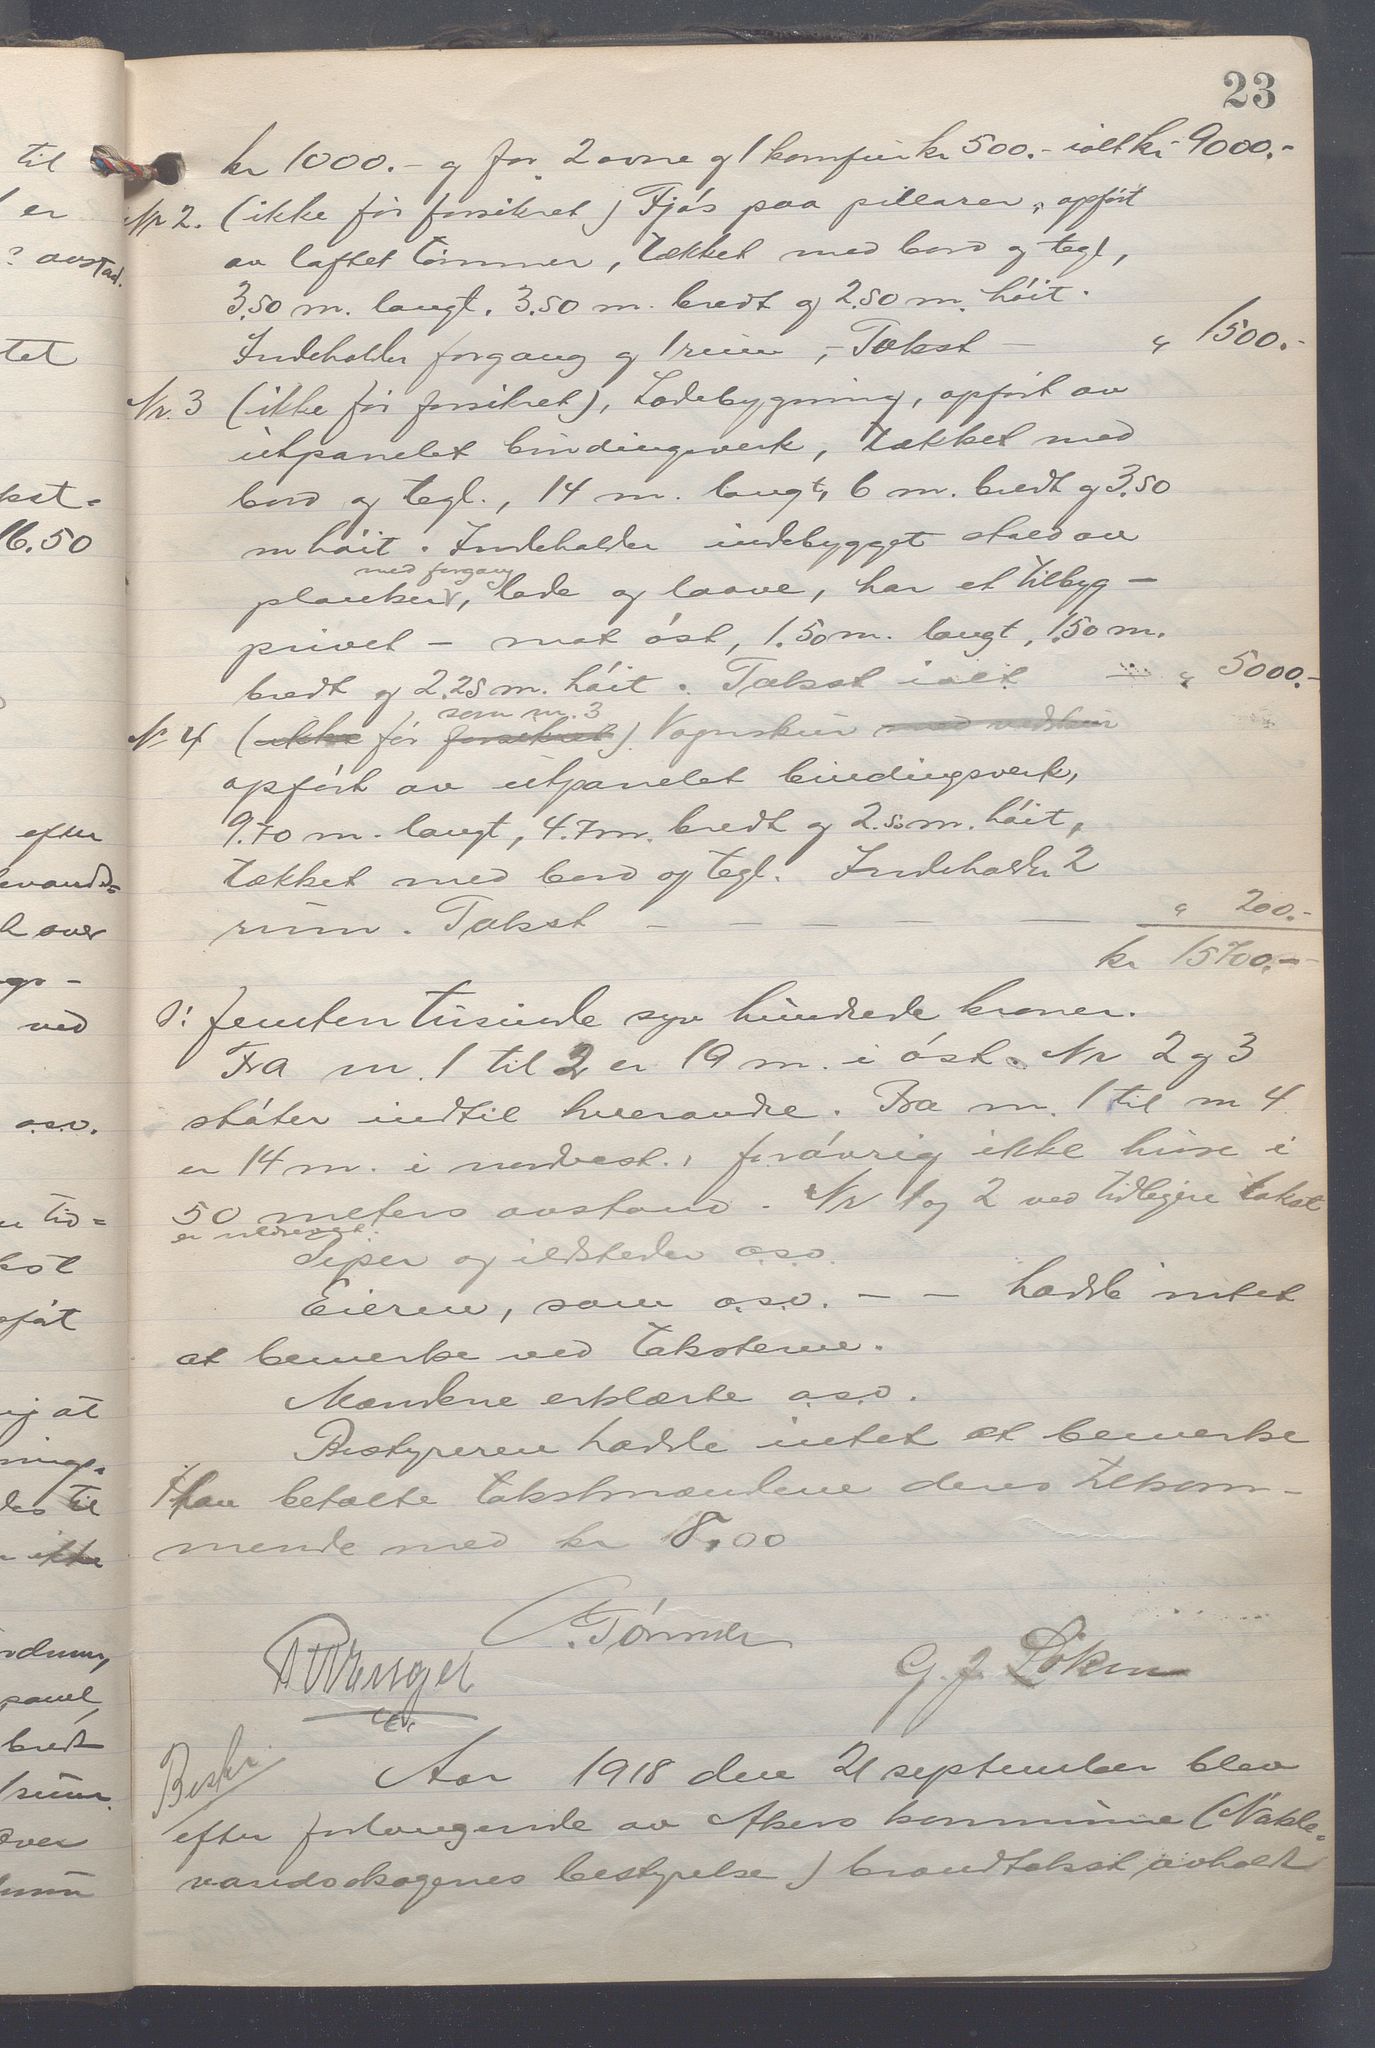 23
kr 1000.- og for 2 ovne og 1 komfur kr 500.- ialt kr 9000.-
Nr 2. (ikke før forsikret) Fjøs paa pillarer, opført
av laftet tømmer, tækket med bord og tegl,
3.50 m. langt, 3.50 m. bredt og 2.50 m. høit.
Indeholder forgang og 1 rum, - Takst - " 1500.-
Nr. 3 (ikke før forsikret), Ladebygning, opført av
utpanelet bindingsverk, tækket med
bord og tegl., 14 m. langt, 6 m. bredt og 3.50
m høit. Indeholder indebygget stald av
med forgang
planker, lade og laave, har et tilbyg -
privet - mot øst, 1.50 m. langt, 1.50 m.
bredt og 2.25 m. høit. Takst ialt " 5000.-
som nr. 3
Nr 4 (ikke før forsikret) Vognskur med vedskur
opført av utpanelet bindingsverk,
9.70 m. langt, 4.7 m. bredt og 2.50 m. høit,
tækket med bord og tegl. Indeholder 2
rum. Takst - - - - " 200.-
kr 15700.-
d: femten tusinde syv hundrede kroner.
Fra nr. 1 til 2 er 19 m. i øst. Nr 2 og 3
støter indtil hverandre. Fra nr. 1 til nr 4
er 14 m. i nordvest., forøvrig ikke huse i
50 meters avstand. Nr 1 og 2 ved tidligere takst
er nedrevet.
Piper og ildsteder o.s.v.
Eieren, som o.s.v. - - hadde intet
at bemerke ved taksterne.
Mændene erklærte o.s.v.
Bestyreren hadde intet at bemerke
Han betalte takstmændene deres tilkom-
mende med kr 8,00
Tønner
G. J. Löken
Beskr. Aar 1918 den 21 september blev
efter forlangende av Akers kommune (Nøkle-
vandsskogenes bestyrelse) brandtakst avholdt
til
er
avstand.
tet
16.50
efter
over
ved
o.s.v.
til
ikke
panel
bredt
over